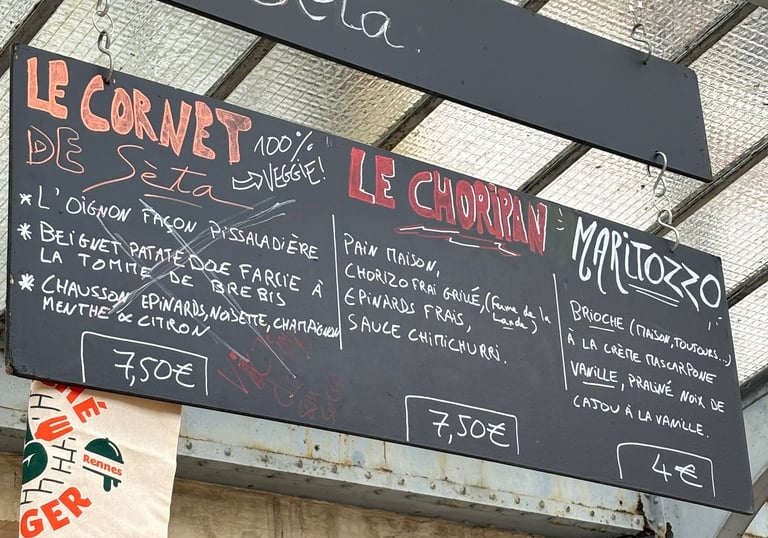 Sèta.
LE CORNET
DE Sèta
100%
⇨ VEGGIE!
* L'OIGNON FAÇON PISSALADIÈRE
* BEIGNET PATATE DOUCE FARCIE À
LA TOMME DE BREBIS
* CHAUSSON EPINARDS, NOISETTE, CHAMPIGNON
MENTHE & CITRON
7,50€
LE CHORIPAN
PAIN MAISON,
CHORIZO FRAI GRILLÉ, (Ferme de la
Lande)
EPINARDS FRAIS,
SAUCE CHIMICHURRI.
7,50€
MARITOZZO
BRIOCHE (MAISON, TOUJOURS...)
À LA CRÈME MASCARPONE
VANILLE, PRALINÉ NOIX DE
CAJOU À LA VANILLE.
4€
Rennes
GER